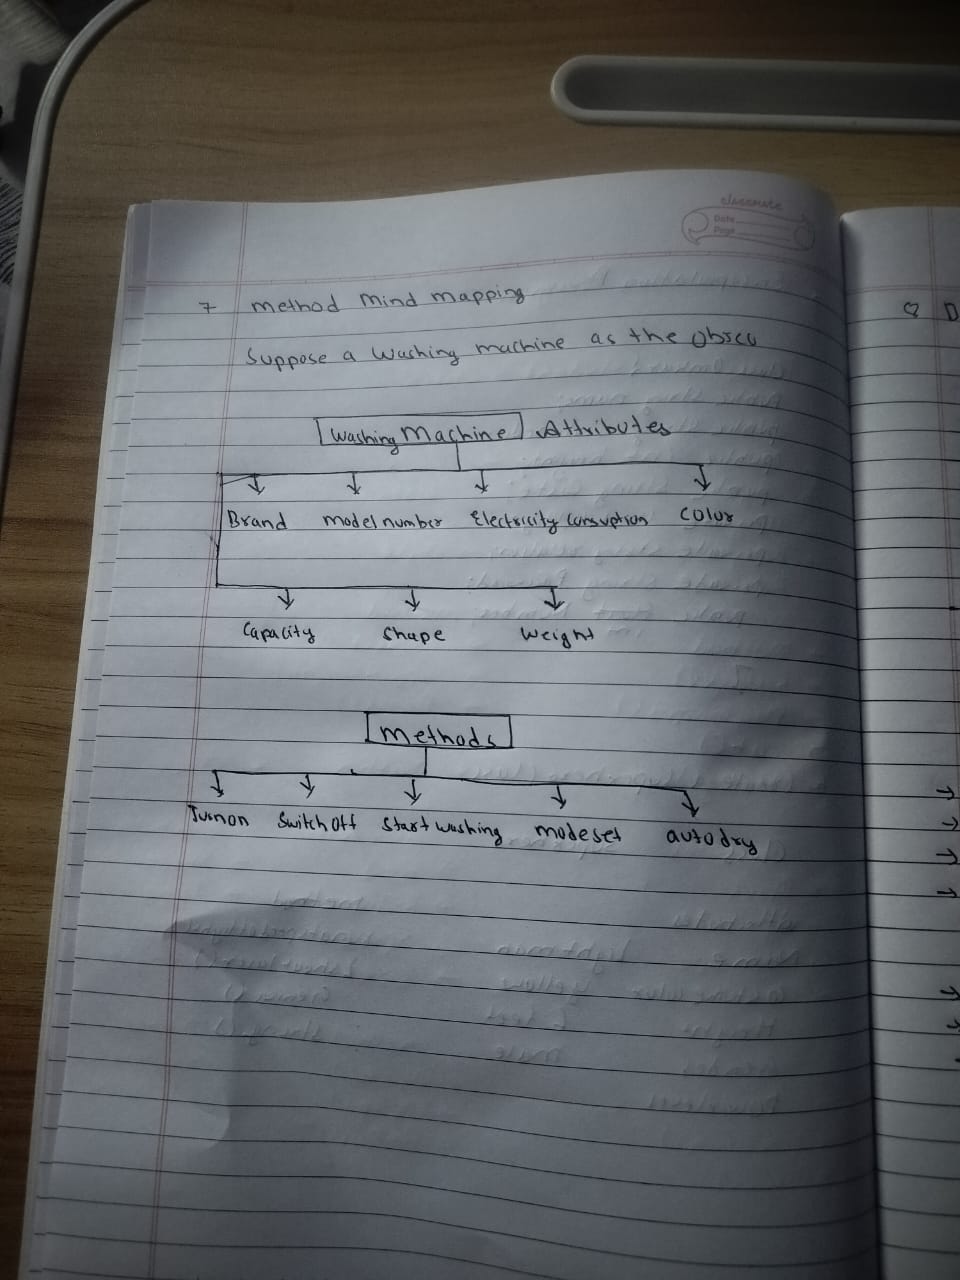 classmate
Date
Page
7 method mind mapping
Suppose a washing machine as the
Washing Machine Attributes
Brand model number Electricity consuption color
Capacity shape weight
methods
Turnon Switch off Start washing modeset auto dry